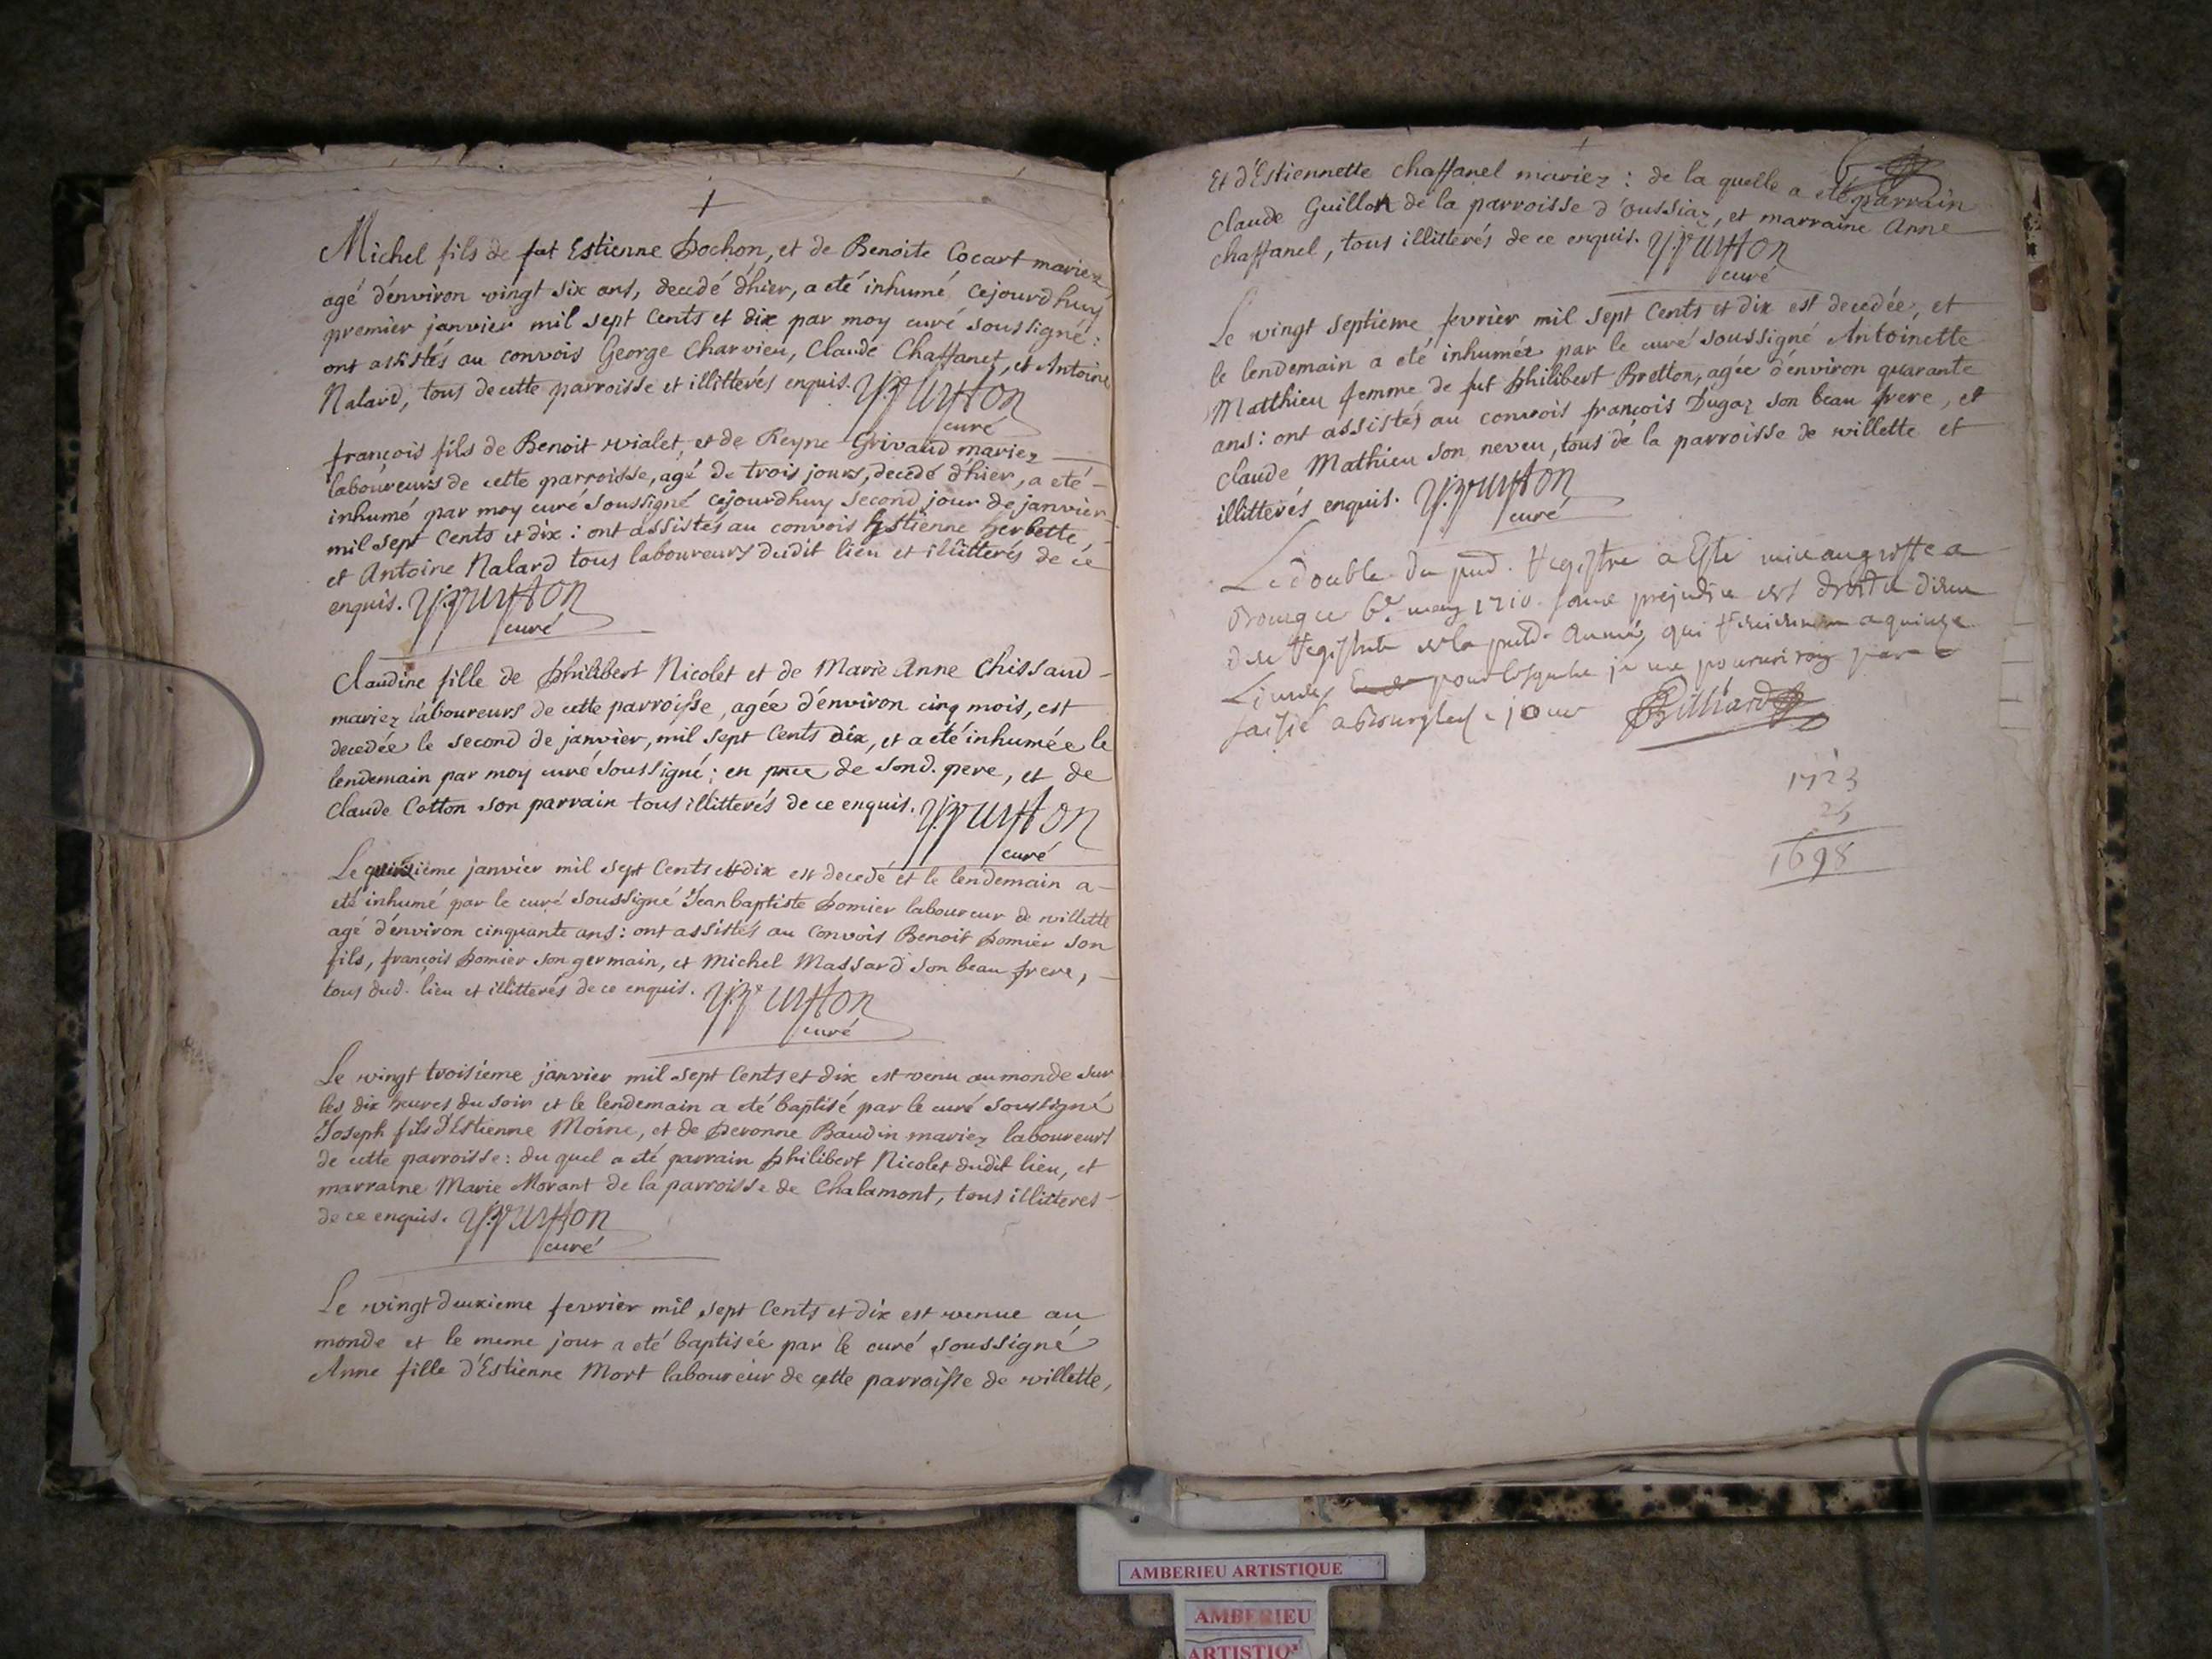 Michel fils de fut Estienne Pochon, et de Benoite Cocart mariez
agé d'environ vingt six ans, decedé d'hier, a eté inhumé cejourdhuy
premier janvier mil sept cents et dix par moy curé soussigné:
ont assistés au convois George Charvieu, Claude Chaffanet, et Antoine
Nalard, tous de cette parroisse et illitterés enquis.
curé
françois fils de Benoit vialet, et de Reyne Grivaud mariez
laboureurs de cette parroisse, agé de trois jours, decedé d'hier, a eté
inhumé par moy curé soussigné cejourdhuy second jour de janvier
mil sept cents et dix: ont assistés au convois Estienne herbette,
et Antoine Nalard tous laboureurs dudit lieu et illitterés de ce
enquis.
curé
Claudine fille de philibert Nicolet et de Marie Anne Chissaud
mariez laboureurs de cette parroisse, agée d'environ cinq mois, est
decedée le second de janvier, mil sept cents dix, et a eté inhumée le
lendemain par moy curé soussigné; en pnce de sond. pere, et de
Claude Cotton son parrain tous illitterés de ce enquis.
curé
Le janvier mil sept cents et dix est decedé et le lendemain a
eté inhumé par le curé soussigné Jean baptiste pomier laboureur de villette
agé d'environ cinquante ans: ont assistés au convois Benoit pomier son
fils, françois pomier son germain, et Michel Massard son beau frere,
tous dud. lieu et illitterés de ce enquis.
curé
Le vingt troisieme janvier mil sept cents et dix est venu au monde sur
les dix heures du soir et le lendemain a eté baptisé par le curé soussigné
Joseph fils d'Estienne Moine, et de peronne Baudin mariez laboureurs
de cette parroisse: du quel a eté parrain philibert Nicolet dudit lieu, et
marraine Marie Morant de la parroisse de Chalamont, tous illitteres
de ce enquis.
curé
Le vingt deuxieme fevrier mil sept cents et dix est venue au
monde et le meme jour a eté baptisée par le curé soussigné
Anne fille d'Estienne Mort laboureur de cette parroisse de villette,
et d'Estiennette chaffanel mariez: de la quelle a eté parrain
claude Guillon de la parroisse d'oussiaz, et marraine Anne
chaffanel, tous illitterés de ce enquis.
curé
Le vingt septieme fevrier mil sept cents et dix est decedée, et
le lendemain a eté inhumée par le curé soussigné Antoinette
Matthieu femme de fut philibert Bretton, agée d'environ quarante
ans: ont assistés au convois françois Dugaz son beau frere, et
claude Mathieu son neveu, tous de la parroisse de villette et
illitterés enquis.
curé
Le double du Registre a Esté mis au greffe a
Bourg ce 6e may 1710 sans prejudice
année, qui
pour lesquels je me
Billiard
1723
25
1698
AMBERIEU ARTISTIQUE
AMBERIEU
ARTISTIQ